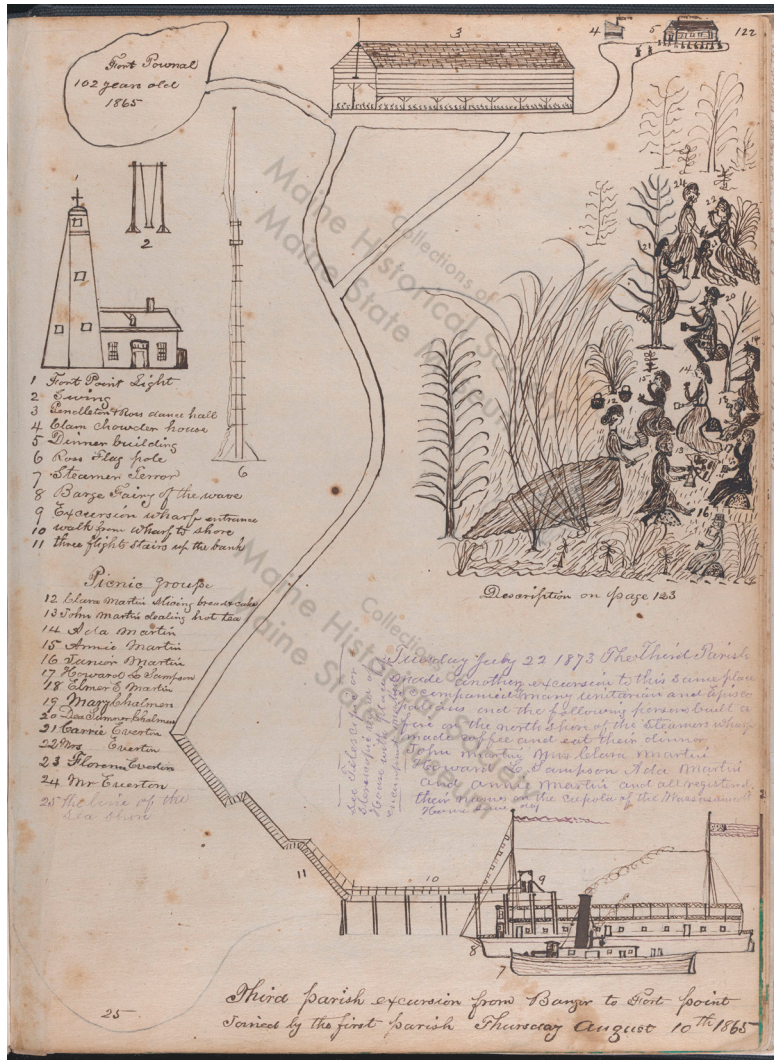 122
Fort Pownal
102 years old
1865
3
4
5
1
2
6
1 Fort Point Light
2 Swing
3 Pendleton & Ross dance hall
4 Clam chowder house
5 Dinner building
6 Ross Flag pole
7 Steamer Terror
8 Barge Fairy of the wave
9 Excursion wharf entrance
10 walk from wharf to shore
11 three flights stairs up the bank
Picnic groups
12 Clara Martin slicing bread & cake
13 John Martin dealing hot tea
14 Ada Martin
15 Annie Martin
16 Junior Martin
17 Howard L Sampson
18 Elmer E Martin
19 Mary Chalmers
20 Dea Sumner Chalmers
21 Carrie Everton
22 Mrs Everton
23 Florence Everton
24 Mr Everton
25 The line of the
Sea Shore
24
22
21
20
15
14
12
13
16
Description on page 123
Tuesday July 22 1873 The Third Parish
made another excursion to this same place
accompanied many unitarian and
and the following persons built a
fire on the north shore of the steamers wharf
made coffee and eat their dinner
John Martin Mrs Clara Martin
Howard L Sampson Ada Martin
and Annie Martin and all registered
their names on the cupola of the
House
See
House
11
10
9
8
7
25
Third parish excursion from Bangor to Fort point
Joined by the first parish Thursday August 10th 1865
Collections of
Maine Historical Society
Maine State Museum
Collections of
Maine Historical Society
Maine State Museum